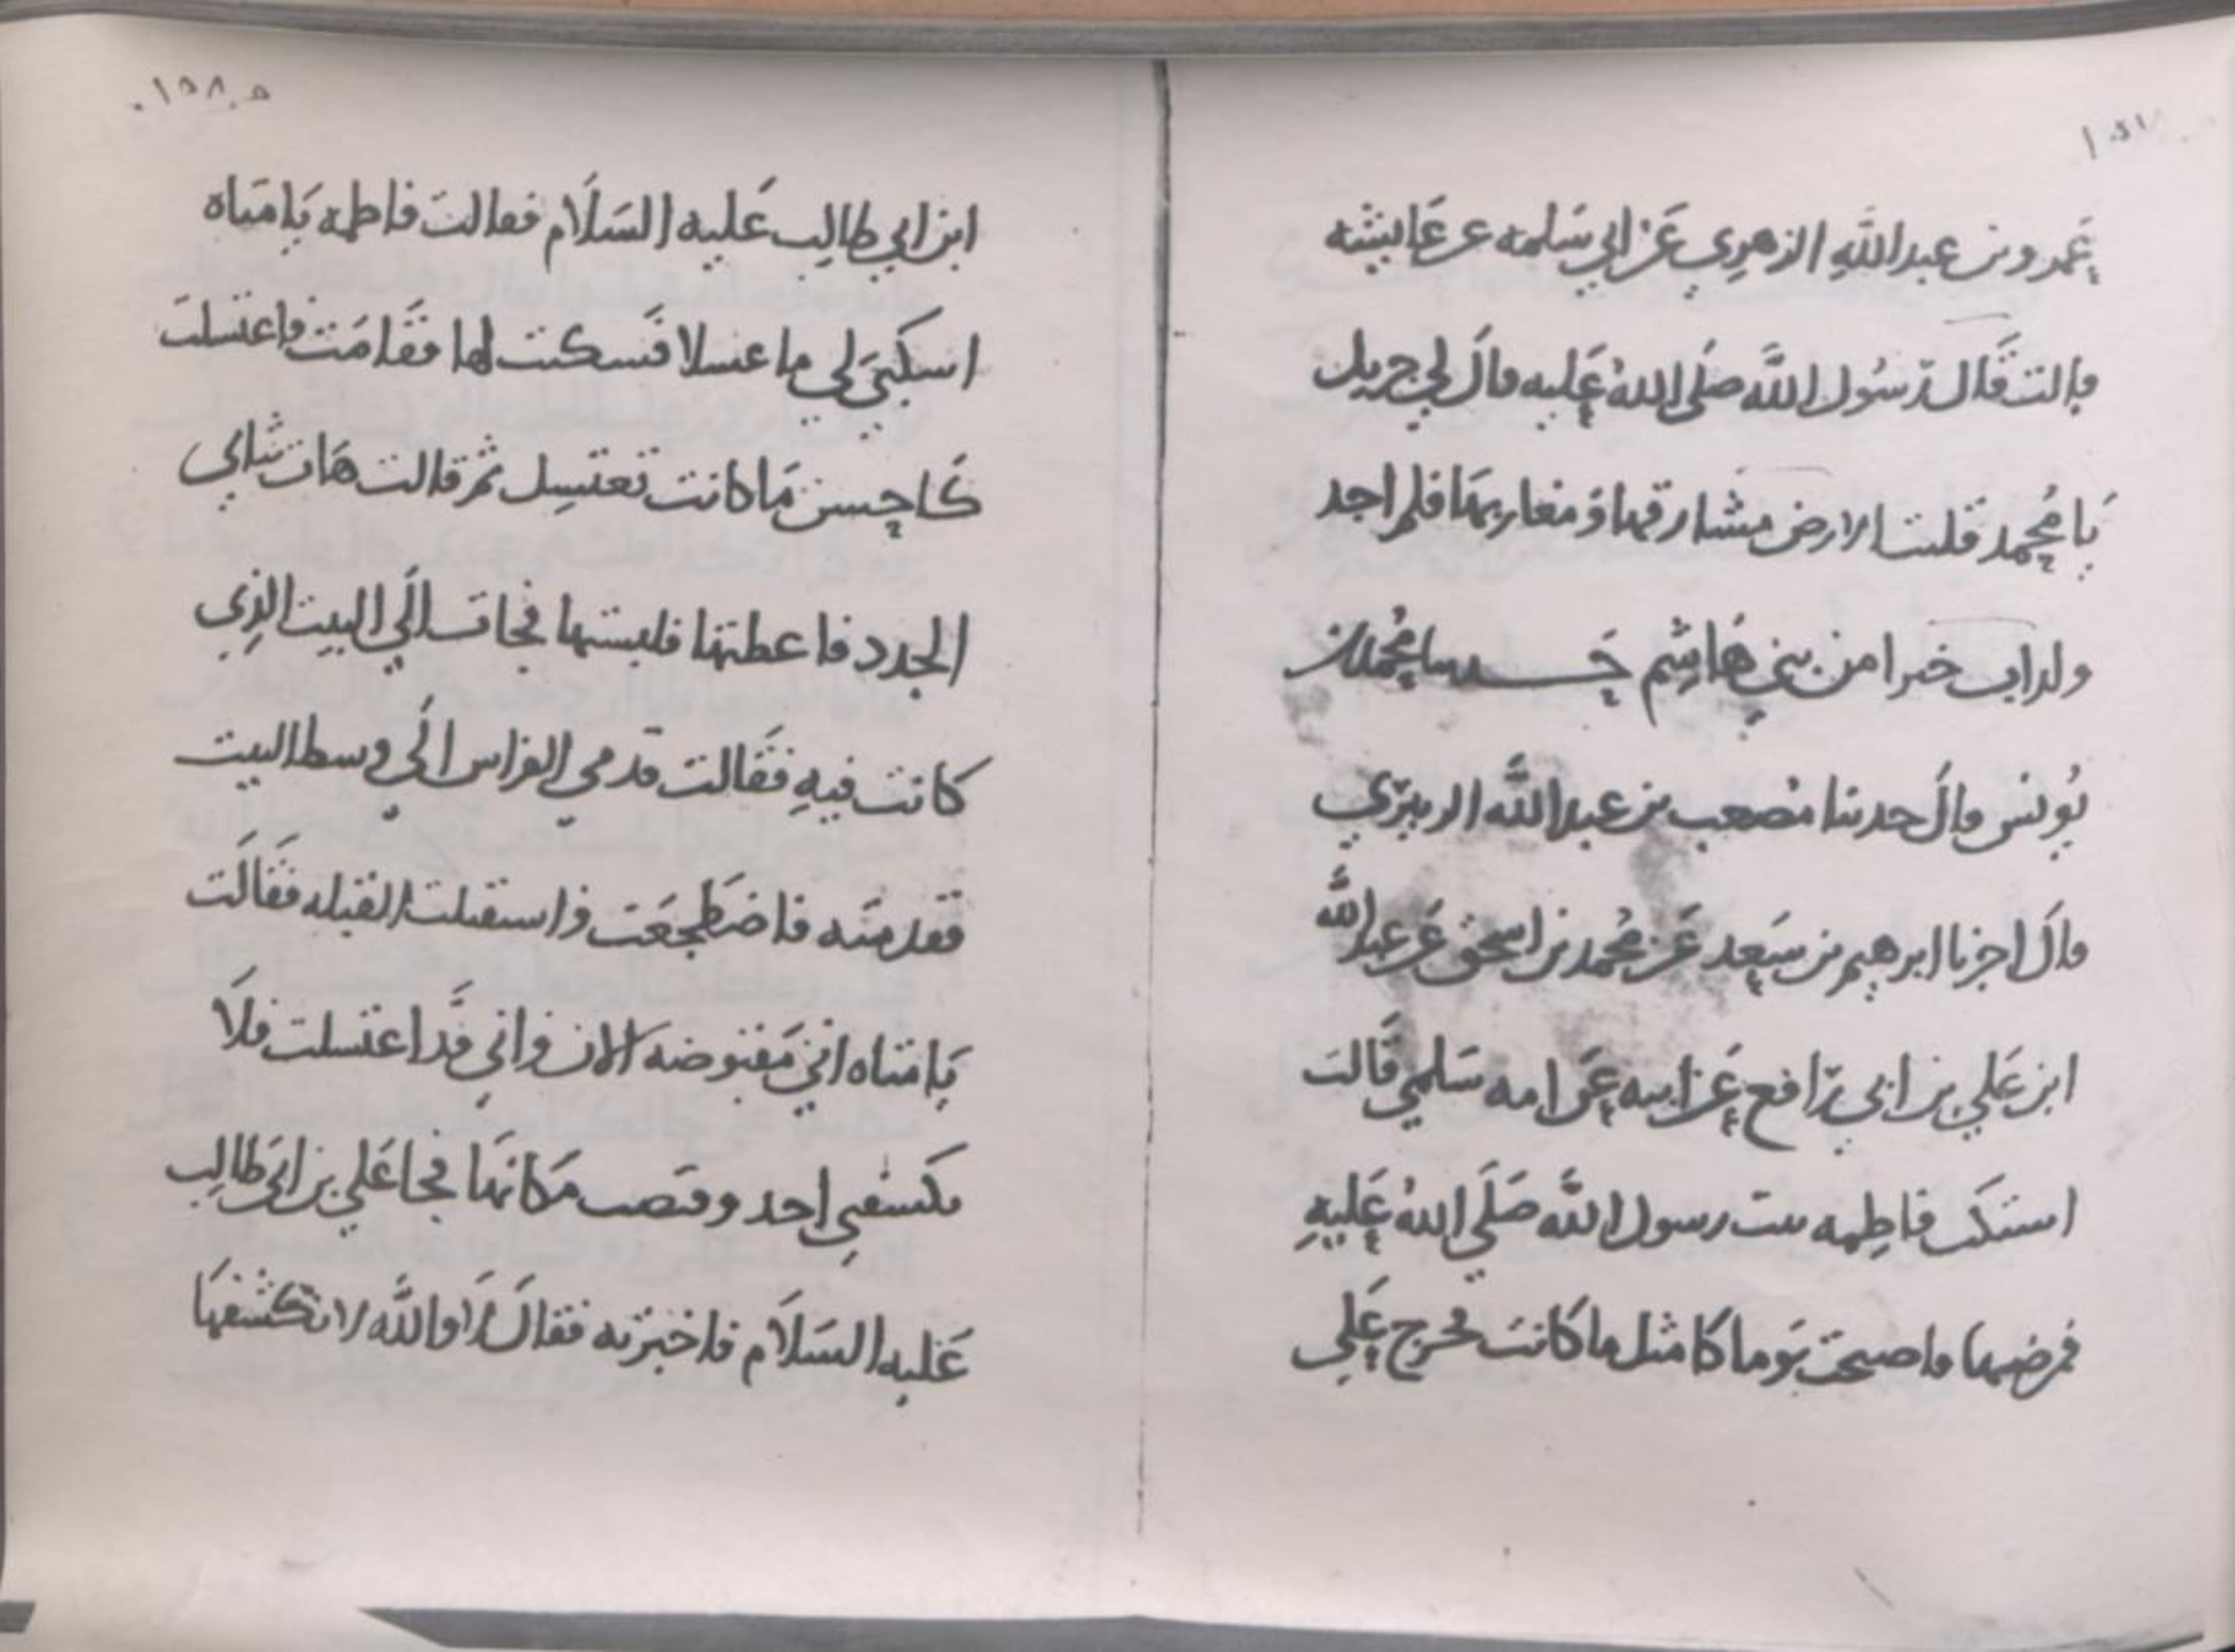 عمرو بن عبدالله الزهري عن ابي سلمه عن عايشه
قالت قال رسول الله صلى الله عليه قال لي جبريل
يا محمد قلبت الارض مشارقها ومغاربها فلم اجد
ولد اب خيرا من بني هاشم حدثنا محمد بن
يونس قال حدثنا مصعب بن عبدالله الزبيري
قال اخبرنا ابرهيم بن سعد عن محمد بن اسحق عن عبدالله
ابن علي بن ابي رافع عن ابيه عن امه سلمي قالت
اشتكت فاطمه بنت رسول الله صلى الله عليه
فمرضها فاصبحت يوما كامثل ما كانت فخرج علي
١٥٨
ابن ابي طالب عليه السلام فقالت فاطمه يا امتاه
اسكبي لي ما غسلا فسكبت لها فقامت فاغتسلت
كاحسن ما كانت تغتسل ثم قالت هات ثيابي
الجدد فاعطتها فلبستها فجات الى البيت الذي
كانت فيه فقالت قدمي الفراش الى وسط البيت
فقدمته فاضطجعت واستقبلت القبله فقالت
يا امتاه اني مقبوضه الان واني قد اغتسلت فلا
يكشفني احد وقبضت مكانها فجا علي بن ابي طالب
عليه السلام فاخبرته فقال لا والله لا تكشفها